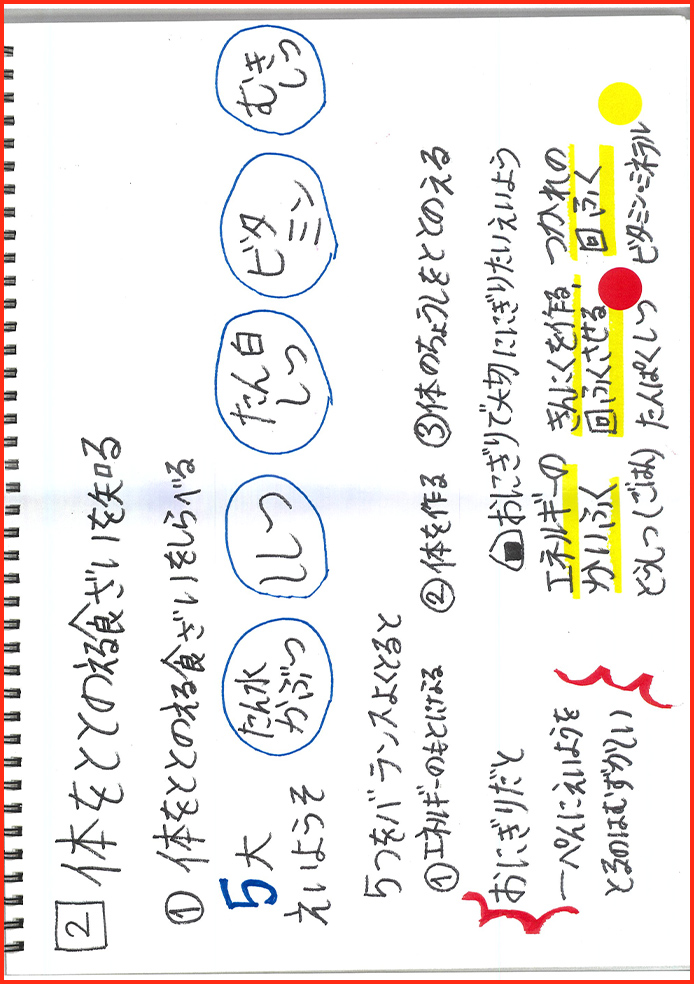 2 体をととのえる食ざいを知る
① 体をととのえる食ざいをしらべる
5大えいようそ
たん水かぶつ
ししつ
たん白しつ
ビタミン
むきしつ
5つをバランスよくとると
①エネルギーのもとになる ②体を作る ③体のちょうしをととのえる
おにぎりだと
一ぺんにえいようを
とるのはむずかしい
おにぎりで大切ににぎりたいえいよう
エネルギーの
かいふく
どうしつ(ごはん)
きんにくを作る、
回ふくさせる
たんぱくしつ
つかれの
回ふく
ビタミン・ミネラル